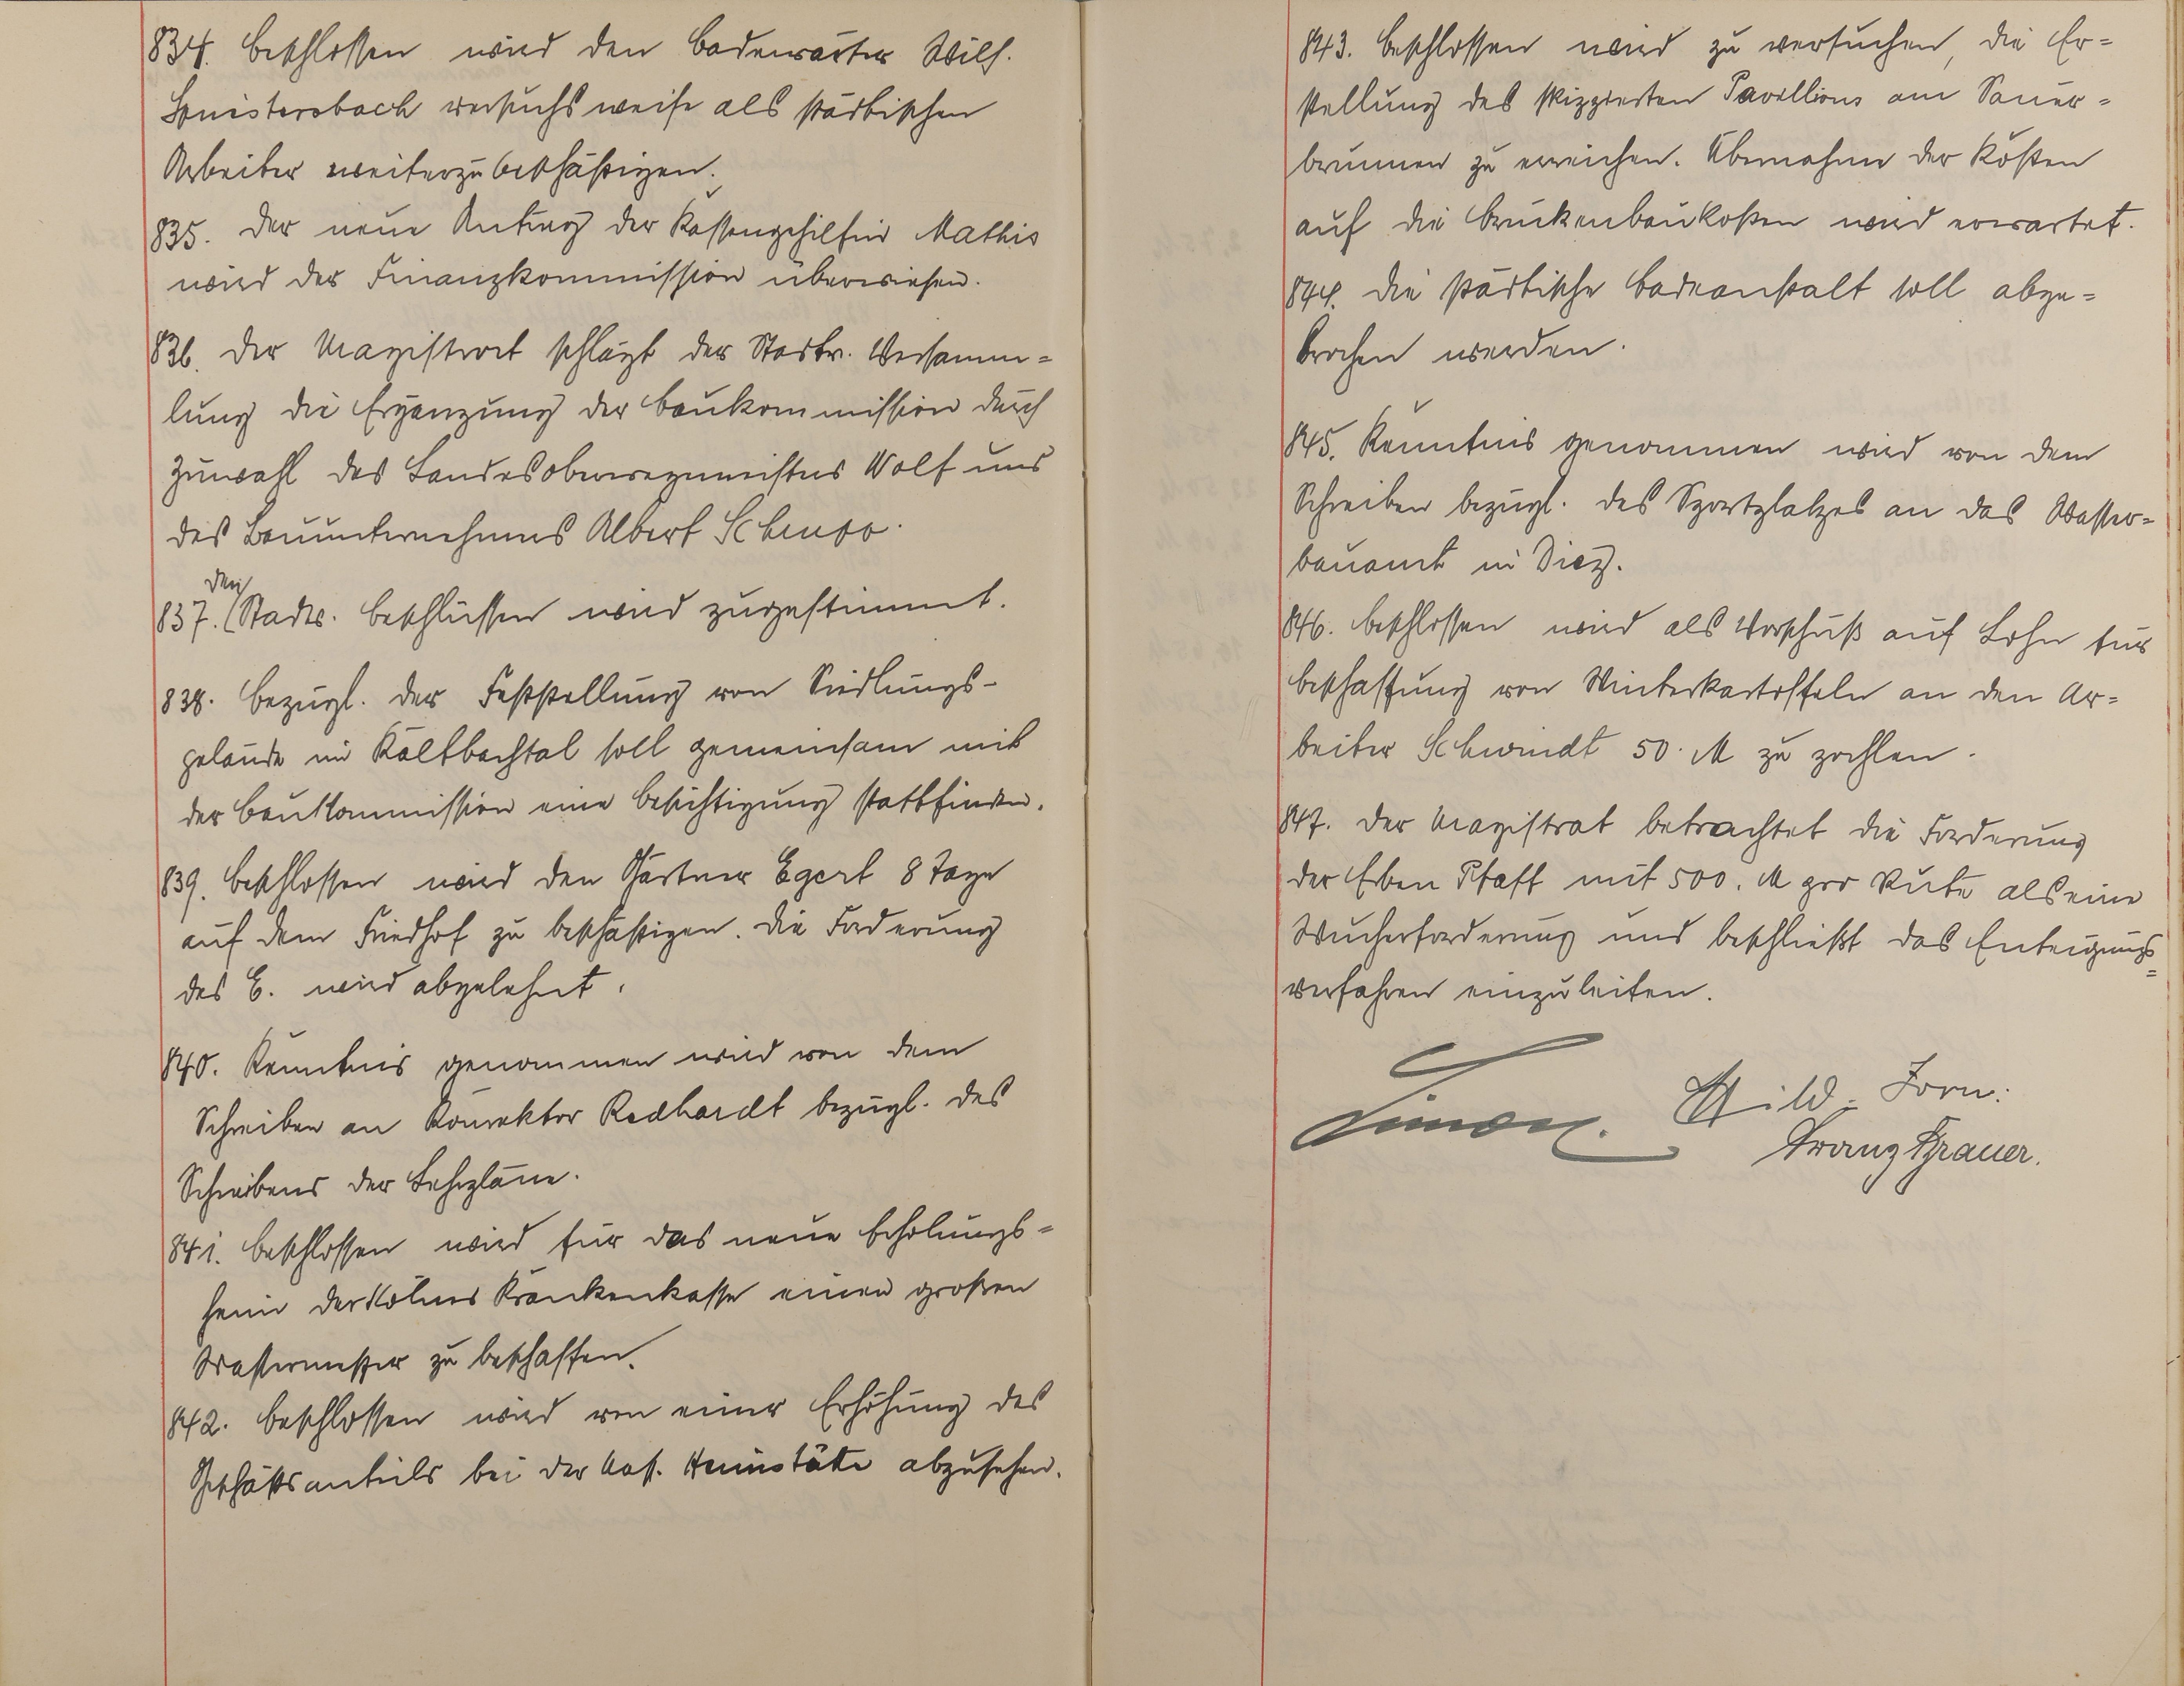 834. Beschlossen wird den Badewärter Wilh.
versuchsweise als städtischen
Arbeiter weiterzubeschäftigen.
835. Der neue Antrag der Kassengehilfin Mathis
wird der Finanzkommission überwiesen.
836. Der Magistrat schlägt der Stadtv. Versamm=
lung die Ergänzung der Baukommission durch
Zuwahl des Landesoberwegemeisters Wolf und
des Bauunternehmers Albert
837. den Stadtv. Beschlüssen wird zugestimmt.
838. Bezügl. der Feststellung von Siedlungs-
gelände im Kaltbachtal soll gemeinsam mit
der Baukommission eine Besichtigung stattfinden.
839. Beschlossen wird den Gärtner Egert 8 Tage
auf dem Friedhof zu beschäftigen. Die Forderung
des E. wird abgelehnt.
840. Kenntnis genommen wird von dem
Schreiben an Konrektor Redhardt bezügl. des
Schreibens der Lehrpläne.
841. Beschlossen wird für das neue Erholungs=
heim der Kölner Krankenkasse einen großen
Wassermesser zu beschaffen.
842. Beschlossen wird von einer Erhöhung des
Geschäftsanteils bei der Nass. Heimstätte abzusehen.
843. Beschlossen wird zu versuchen, die Er=
stellung des skizzierten Pavillions am Sauer=
brunnen zu erreichen. Übernahme der Kosten
auf die Brückenbaukosten wird erwartet.
844. Die städtische Badeanstalt soll abge=
brochen werden.
845. Kenntnis genommen wird von dem
Schreiben bezügl. des Sportplatzes an das Wasser=
bauamt in Diez.
846. Beschlossen wird als Vorschuß auf Lohn für
Beschaffung von Winterkartoffeln an den Ar=
beiter Schwindt 50. M zu zahlen.
847. Der Magistrat betrachtet die Forderung
der Erben Pfaff mit 500. M pro Rute als eine
Wucherforderung und beschließt das Enteignungs=
verfahren einzuleiten.
Simon. Wild. Zorn.
Franz Brauer.